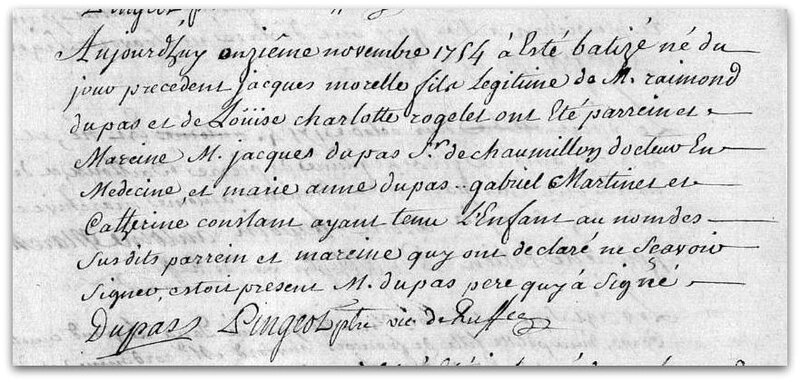 Aujourd'huy onzième novembre 1754 à Esté batizé né du
jour precedent jacques morelle fils legitime de M. raimond
dupas et de Loüise charlotte rogelet ont Eté parrein et
Mareine M. jacques dupas Sr. de chaumillon docteur En
Medecine, et marie anne dupas.. gabriel Martinet et
Catterine constant ayant tenu L'Enfant au nom des
susdits parrein et mareine quy ont declaré ne Sçavoir
signer, estoit present M. dupas pere quy à signé
Dupas Pingeot ptre vic. de Ruffec